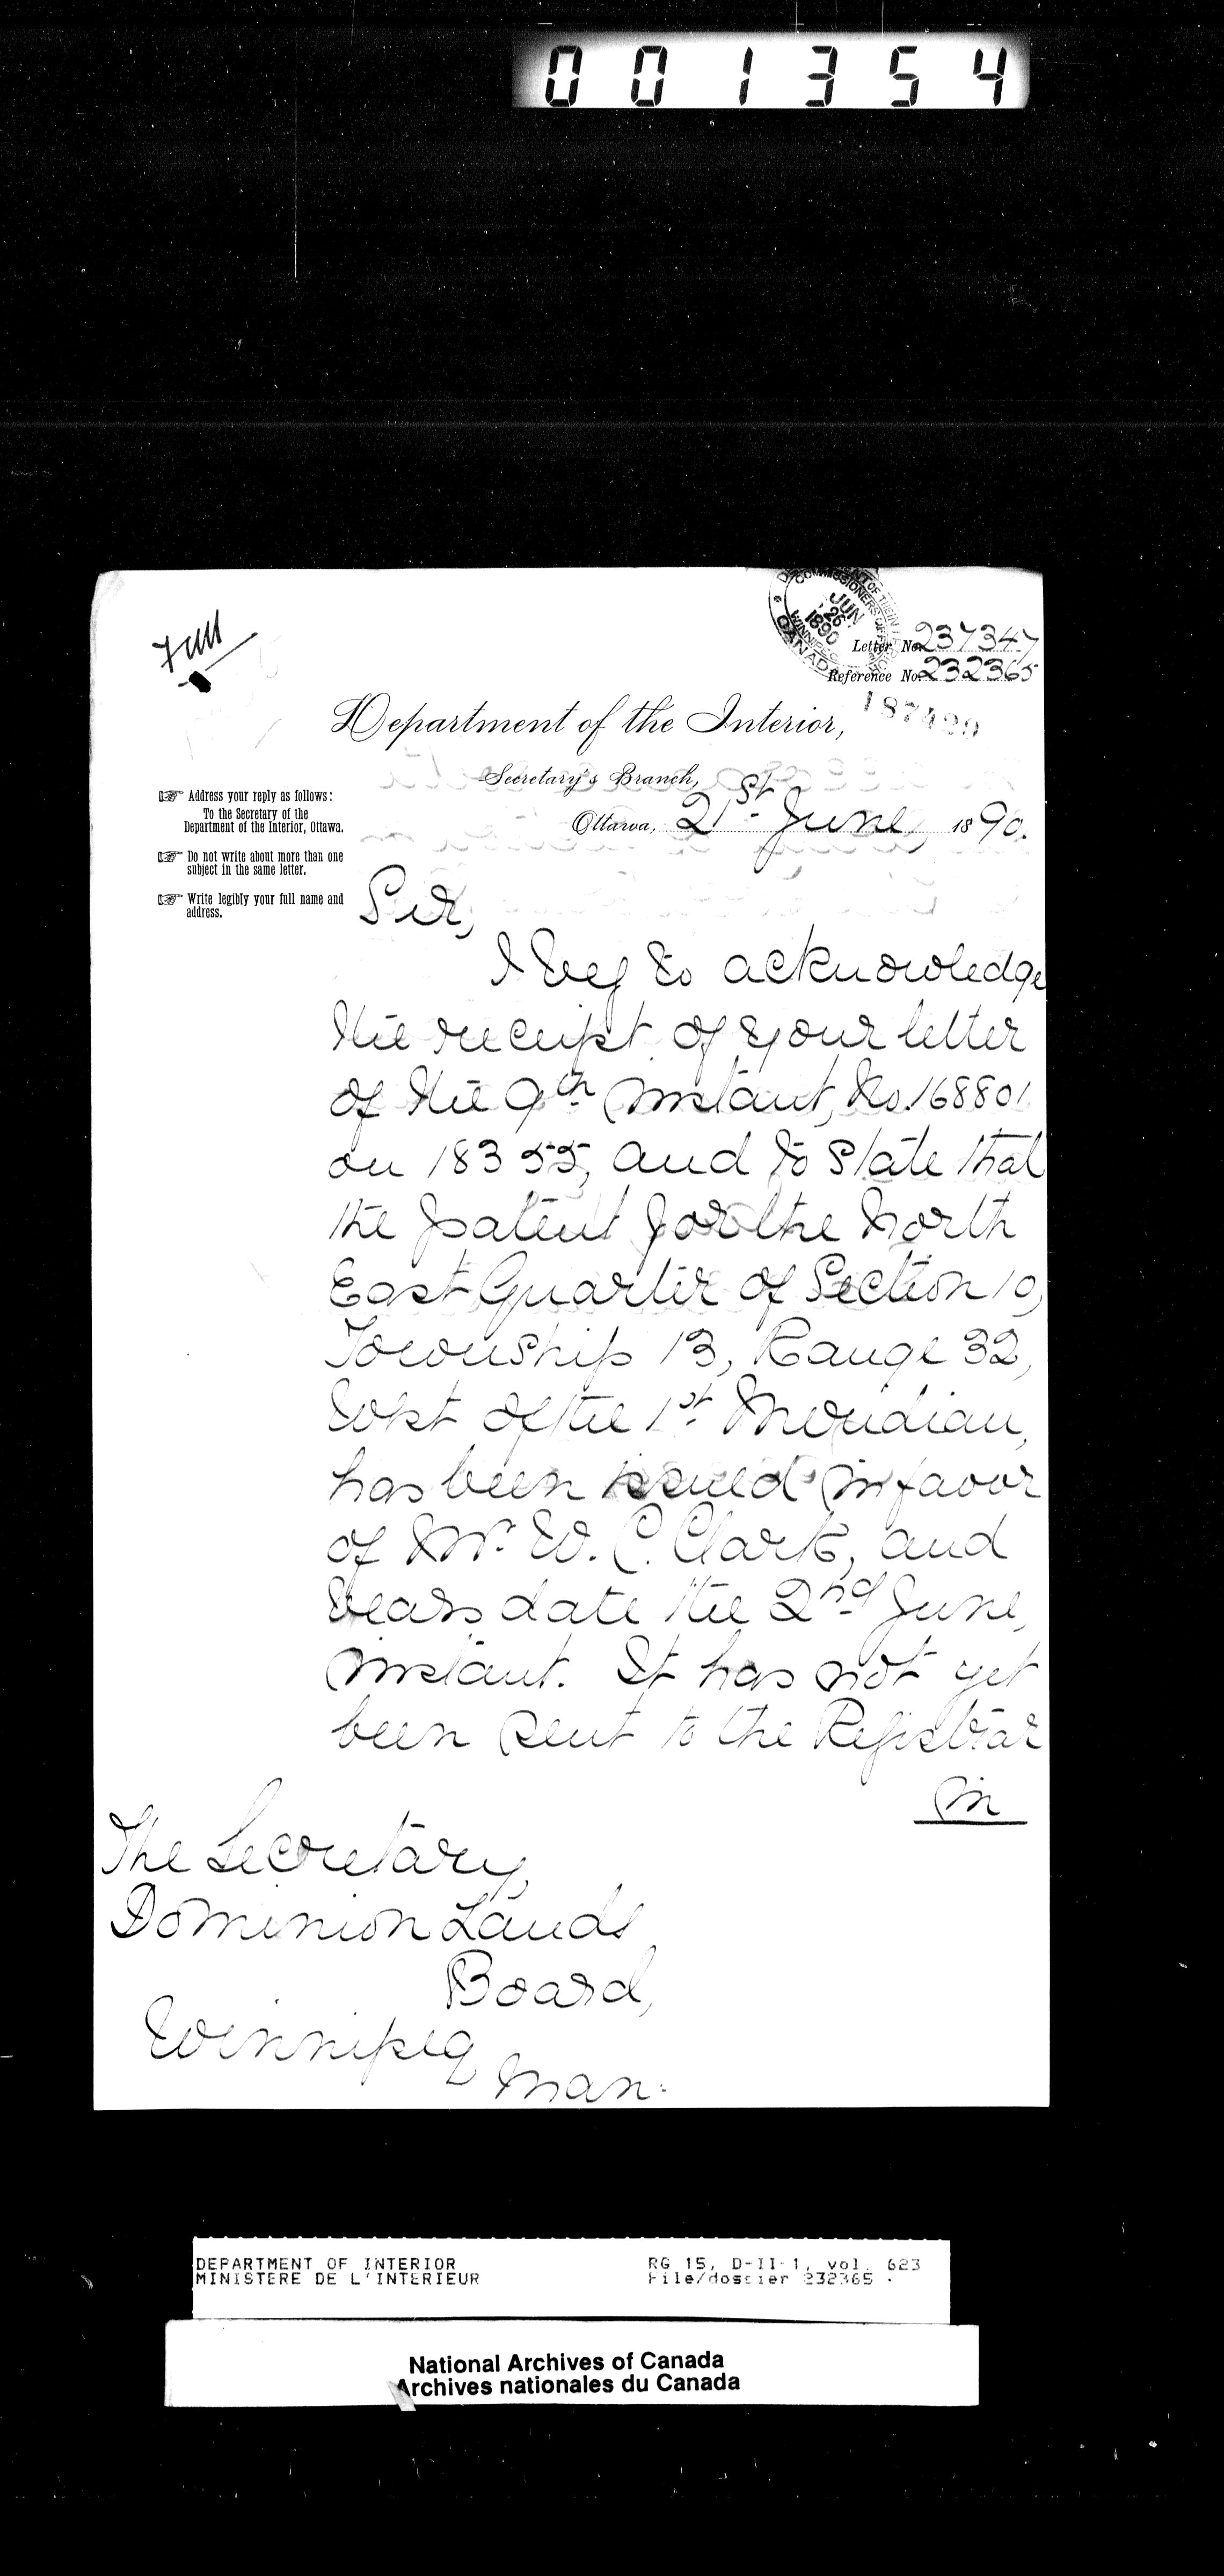 001354
DEPARTMENT OF THE INTERIOR
COMMISSIONERS OFFICE
JUN
26
1890
WINNIPEG
CANADA
Letter No. 237347
Reference No. 232365
Department of the Interior,
Secretary's Branch,
Ottawa, 21st June, 1890.
Address your reply as follows:
To the Secretary of the
Department of the Interior, Ottawa.
Do not write about more than one
subject in the same letter.
Write legibly your full name and
address.
Sir,
I beg to acknowledge
the receipt of your letter
of the 9th instant, No. 168801
on 18355, and to state that
the patent for the North
East Quarter of Section 10,
Township 13, Range 32,
West of the 1st Meridian,
has been issued in favor
of Mr. W. C. Clark, and
bears date the 2nd June,
instant. It has not yet
been sent to the Registrar
in
The Secretary,
Dominion Lands
Board,
Winnipeg
Man:
DEPARTMENT OF INTERIOR
MINISTERE DE L'INTERIEUR
RG 15, D-II-1, vol. 623
File/dossier 232365
National Archives of Canada
Archives nationales du Canada